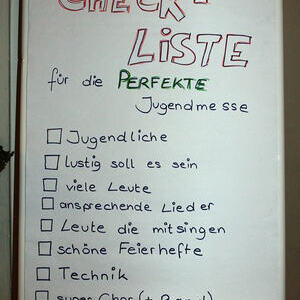 CHECK-
LISTE
für die PERFEKTE
Jugendmesse
Jugendliche
lustig soll es sein
viele Leute
ansprechende Lieder
Leute die mitsingen
schöne Feierhefte
Technik
super Chor (+ Band)